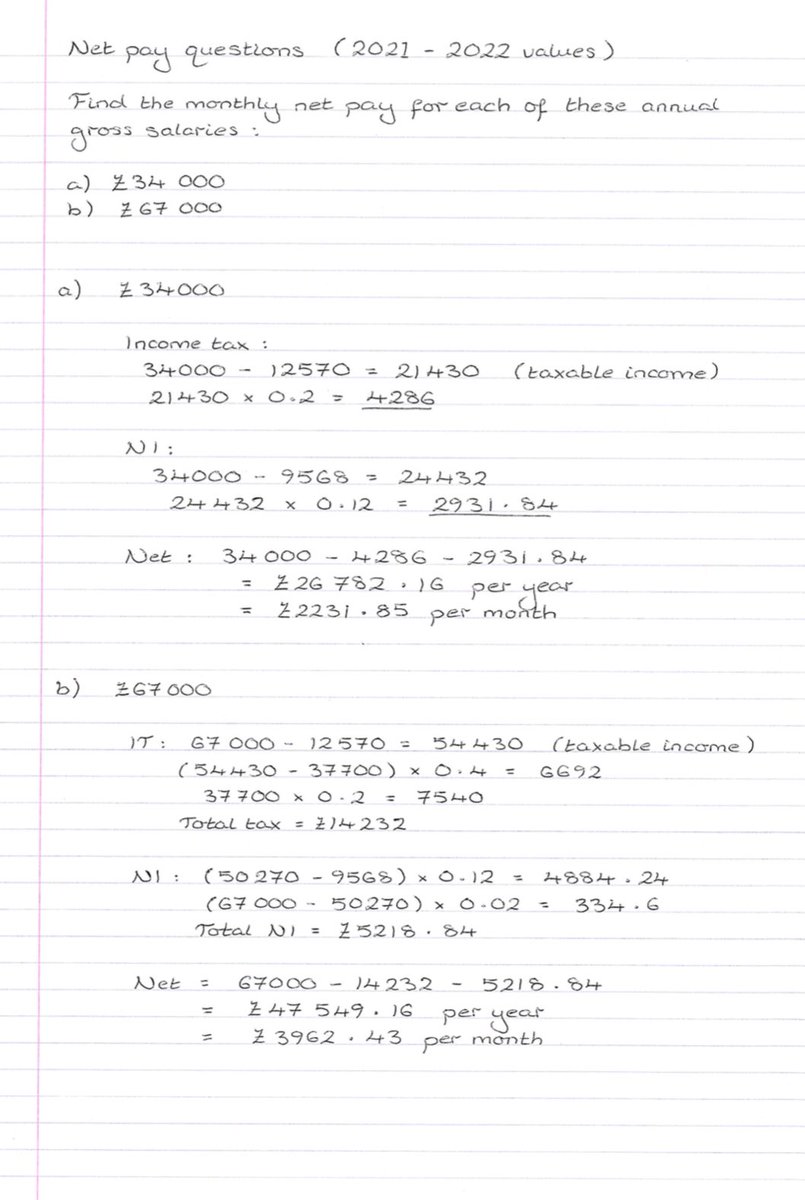 Net pay questions (2021 - 2022 values)
Find the monthly net pay for each of these annual
gross salaries :
a) £34 000
b) £67 000
a) £34000
Income tax :
34000 - 12570 = 21430 (taxable income)
21430 × 0.2 = 4286
NI :
34000 - 9568 = 24432
24432 × 0.12 = 2931.84
Net : 34000 - 4286 - 2931.84
= £26 782.16 per year
= £2231.85 per month
b) £67000
IT : 67000 - 12570 = 54430 (taxable income)
(54430 - 37700) × 0.4 = 6692
37700 × 0.2 = 7540
Total tax = £14232
NI : (50270 - 9568) × 0.12 = 4884.24
(67000 - 50270) × 0.02 = 334.6
Total NI = £5218.84
Net = 67000 - 14232 - 5218.84
= £47 549.16 per year
= £3962.43 per month